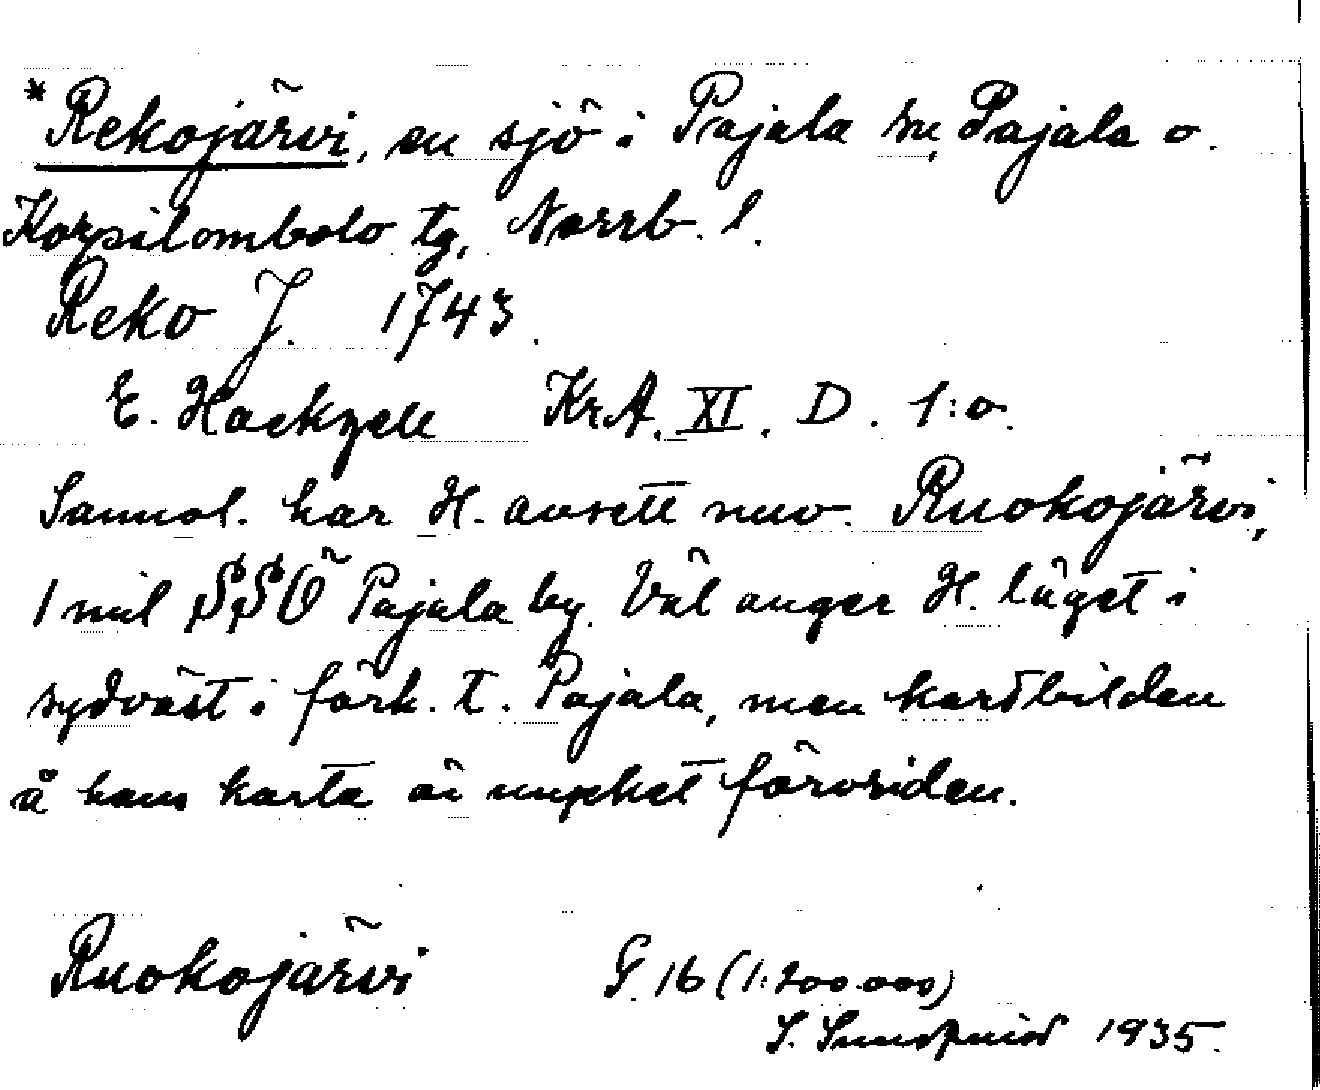 *Rekojärvi, en sjö i Pajala sn, Pajala o.
Korpilombolo tg, Norrb. l.
Reko J. 1743.
E. Hackzell KrA. XI. D. 1:a.
Sannol. har H. avsett nuv. Ruokojärvi,
1 mil SSÖ Pajala by. Väl anger H. läget i
sydväst i förh. t. Pajala, men kartbilden
å hans karta är mycket förvriden.
Ruokojärvi G. 16 (1:200.000)
S. 1935.